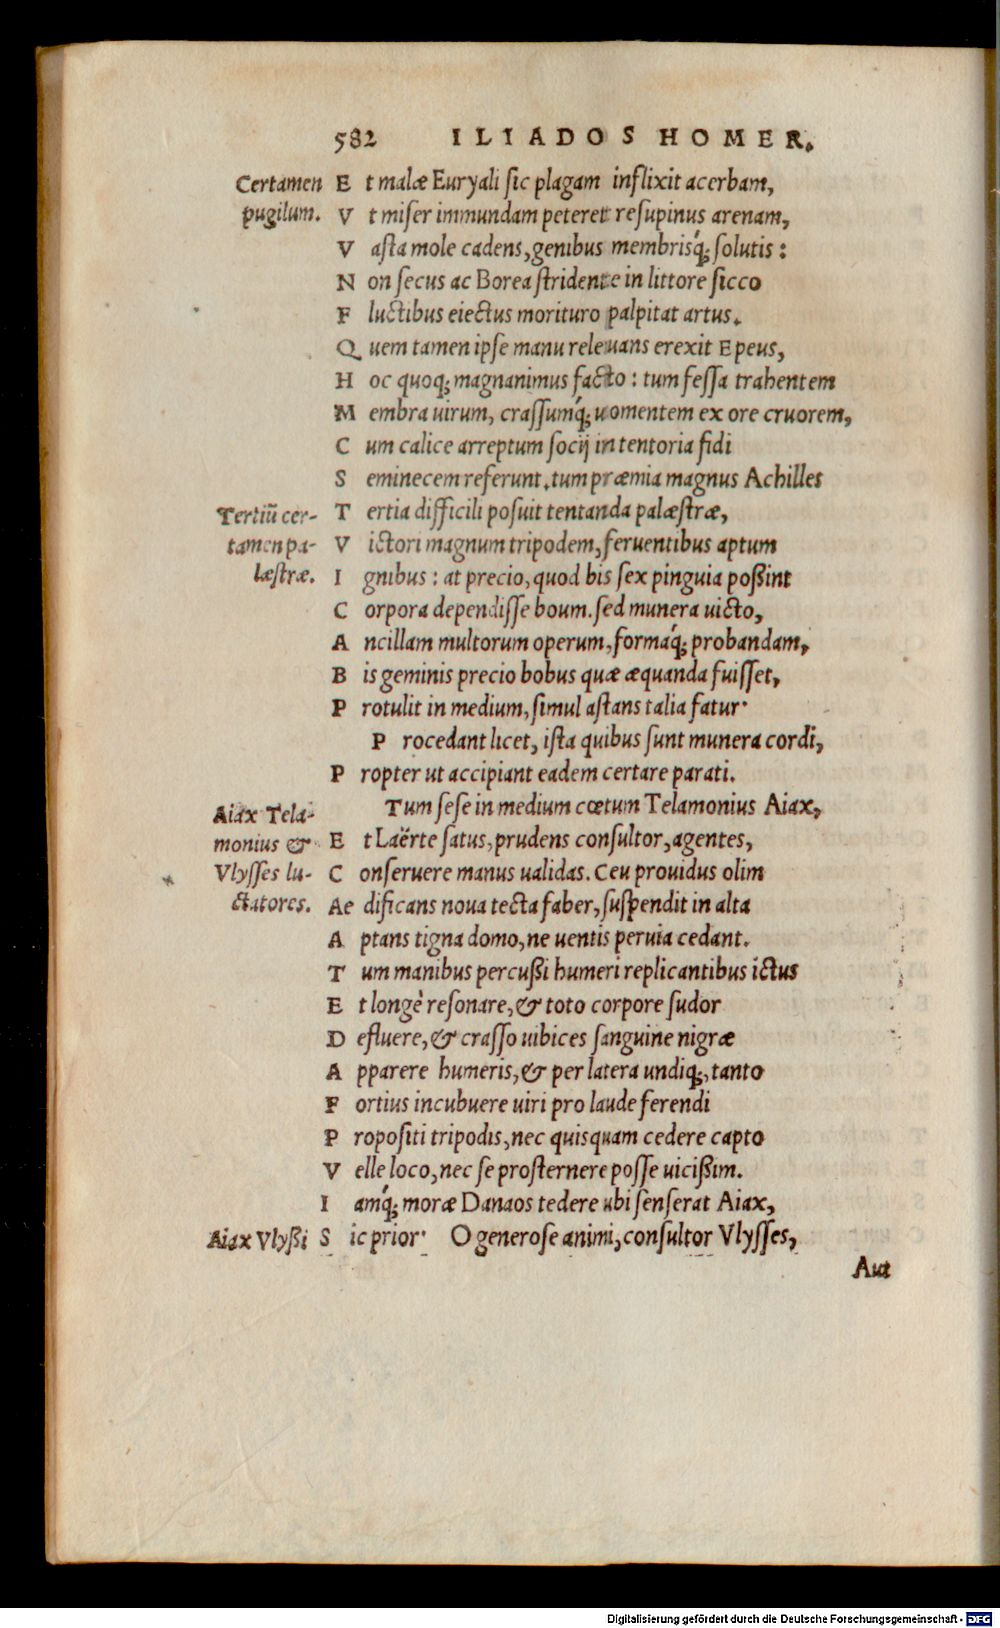 582 ILIADOS HOMER.
Certamen
pugilum.
Et malæ Euryali sic plagam inflixit acerbam,
Vt miser immundam peteret resupinus arenam,
Vasta mole cadens, genibus membrisq́; solutis:
Non secus ac Borea stridente in littore sicco
Fluctibus eiectus morituro palpitat artus.
Quem tamen ipse manu releuans erexit Epeus,
Hoc quoq; magnanimus facto: tum fessa trahentem
Membra uirum, crassumq́; uomentem ex ore cruorem,
Cum calice arreptum socij in tentoria fidi
Seminecem referunt. tum præmia magnus Achilles
Tertiū cer-
tamen pa-
læstræ.
Tertia difficili posuit tentanda palæstræ,
Victori magnum tripodem, feruentibus aptum
Ignibus: at precio, quod bis sex pinguia poßint
Corpora dependisse boum. sed munera uicto,
Ancillam multorum operum, formaq́; probandam,
Bis geminis precio bobus quæ æquanda fuisset,
Protulit in medium, simul astans talia fatur·
Procedant licet, ista quibus sunt munera cordi,
Propter ut accipiant eadem certare parati.
Aiax Tela-
monius &
Vlysses lu-
ctatores.
Tum sese in medium cœtum Telamonius Aiax,
Et Laërte satus, prudens consultor, agentes,
Conseruere manus ualidas. Ceu prouidus olim
Aedificans noua tecta faber, suspendit in alta
Aptans tigna domo, ne uentis peruia cedant.
Tum manibus percußi humeri replicantibus ictus
Et longè resonare, & toto corpore sudor
Defluere, & crasso uibices sanguine nigræ
Apparere humeris, & per latera undiq;, tanto
Fortius incubuere uiri pro laude ferendi
Propositi tripodis, nec quisquam cedere capto
Velle loco, nec se prosternere posse uicißim.
Iamq́; moræ Danaos tedere ubi senserat Aiax,
Aiax Vlyßi
Sic prior· O generose animi, consultor Vlysses,
Aut
Digitalisierung gefördert durch die Deutsche Forschungsgemeinschaft - DFG